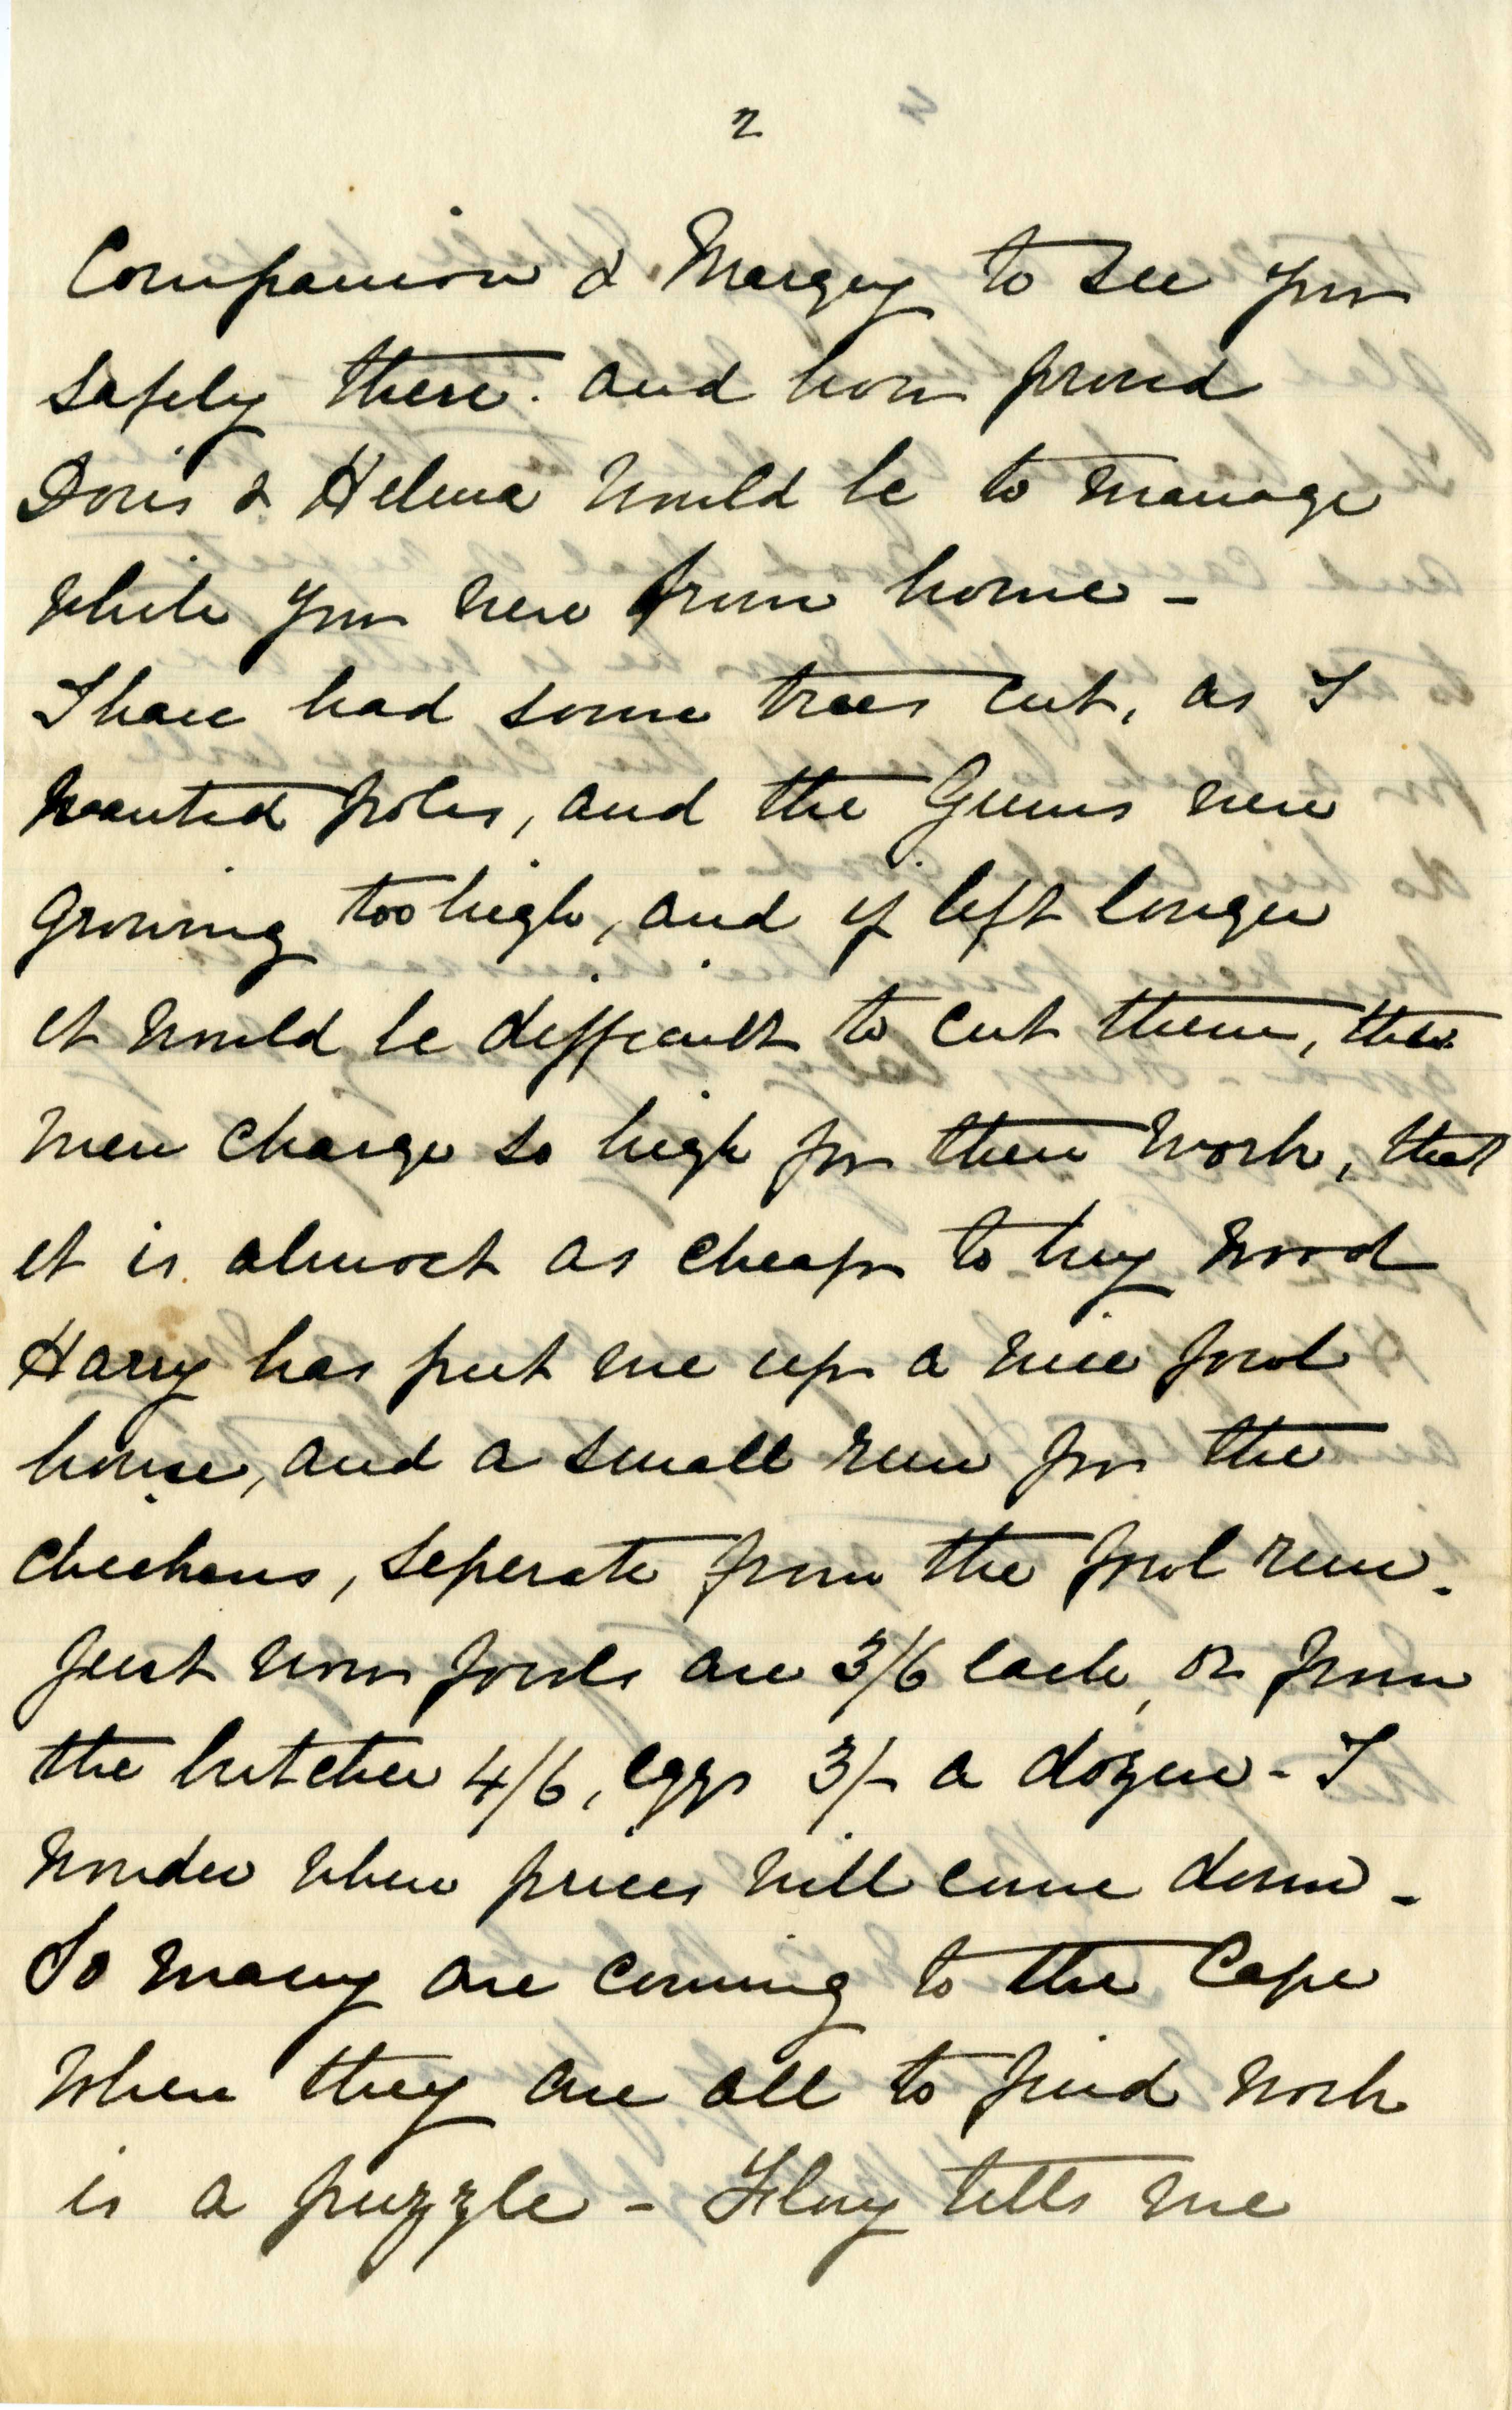 2
Companion & Margery to see you
safely there. and how proud
Doris & Helena would be to manage
while you were from home -
I have had some trees cut, as I
wanted poles, and the Gums were
growing too high, and if left longer
it would be difficult to cut them, the
men charge so high for their work, that
it is almost as cheap to buy wood
Harry has put me up a nice fowl
house, and a small run for the
chickens, seperate from the fowl run.
Just now fowls are 3/6 each, or from
the butcher 4/6, eggs 3/- a dozen - I
wonder when prices will come down -
So many are coming to the Cape
Where they are all to find work
is a puzzle - Flory tells me